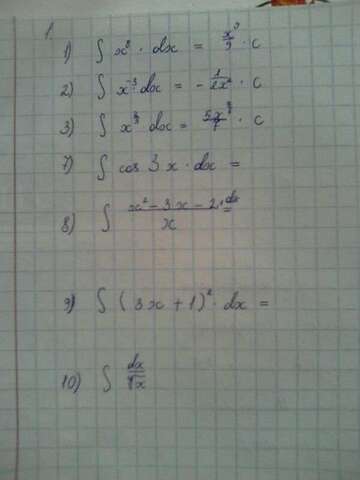 1.
1) ∫ x⁸ · dx = x⁹/9 · c
2) ∫ x⁻³ · dx = - 1/2x² · c
3) ∫ dx = 5x · c
7) ∫ cos 3x · dx =
8) ∫ x² - 3x - 2 · dx / x
9) ∫ (3x + 1)² · dx =
10) ∫ dx / x